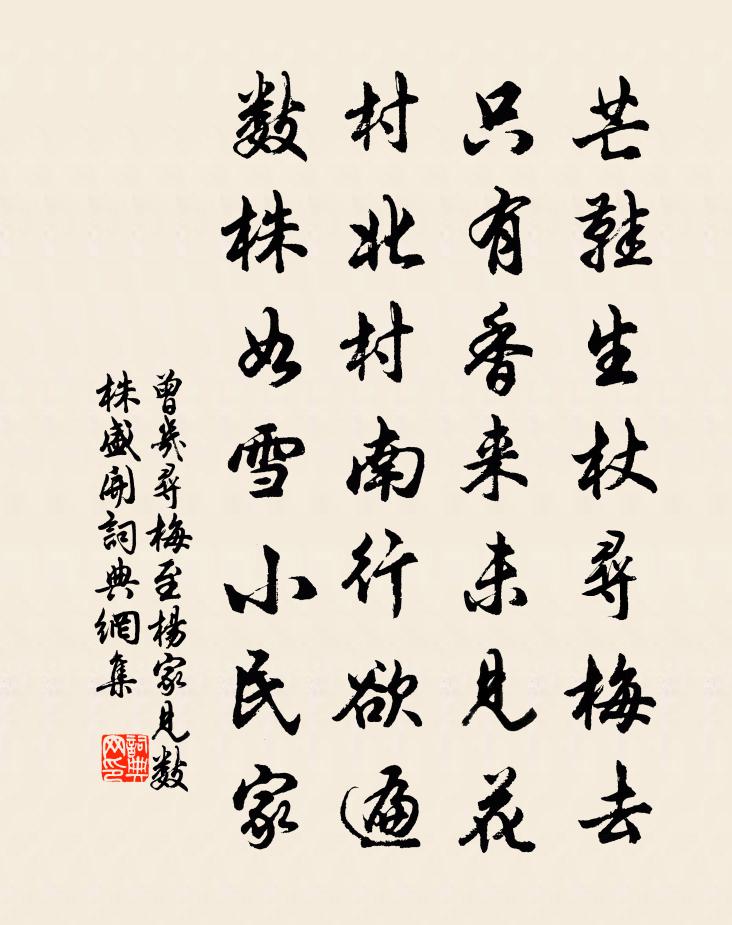 芒鞋生杖尋梅去
只有香来未見花
村北村南行欲遍
数株如雪小民家
曾幾尋梅至楊家見数
株盛開詞典網集
詞典网印